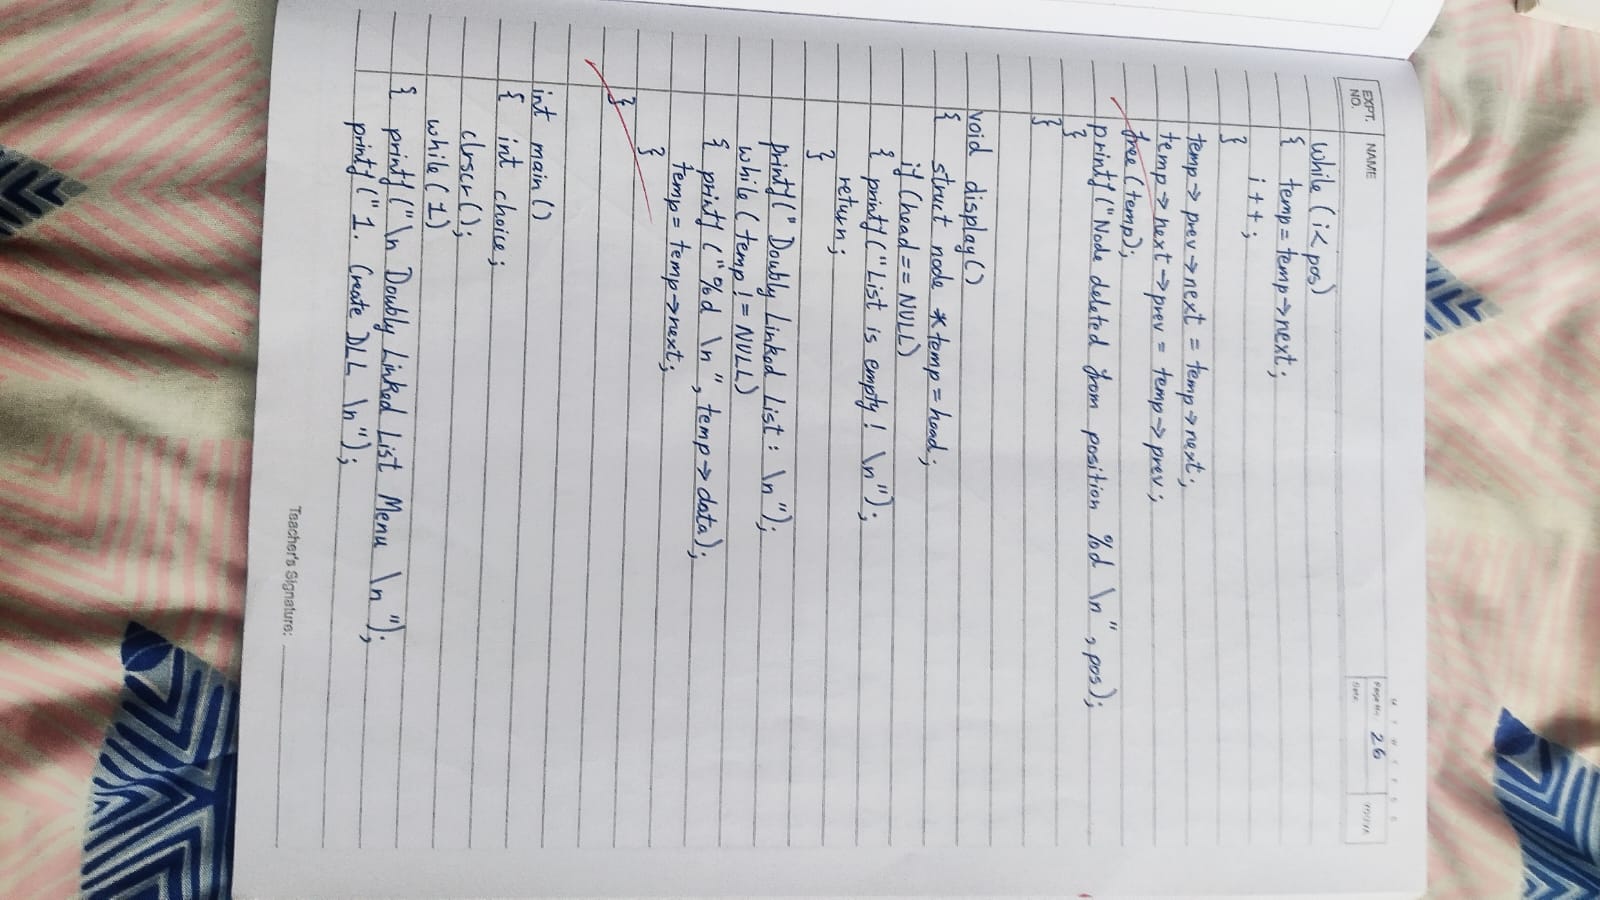 M T W T F S S
EXPT. NO.
NAME
Page No. 26
Date
YOUVA
while (i< pos)
{ temp = temp→next;
i++;
}
temp→ prev→next = temp→next;
temp→ next→prev = temp→ prev;
free (temp);
printf("Node deleted from position %d \n", pos);
}
}
void display()
{ struct node *temp = head;
if (head == NULL)
{ printf("List is empty! \n");
return;
}
printf(" Doubly Linked List: \n");
while (temp != NULL)
{ printf ("%d \n", temp→ data);
temp = temp→next;
}
}
int main()
{ int choice;
clrscr();
while(1)
{ printf("\n Doubly Linked List Menu \n");
printf("1. Create DLL \n");
Teacher's Signature: